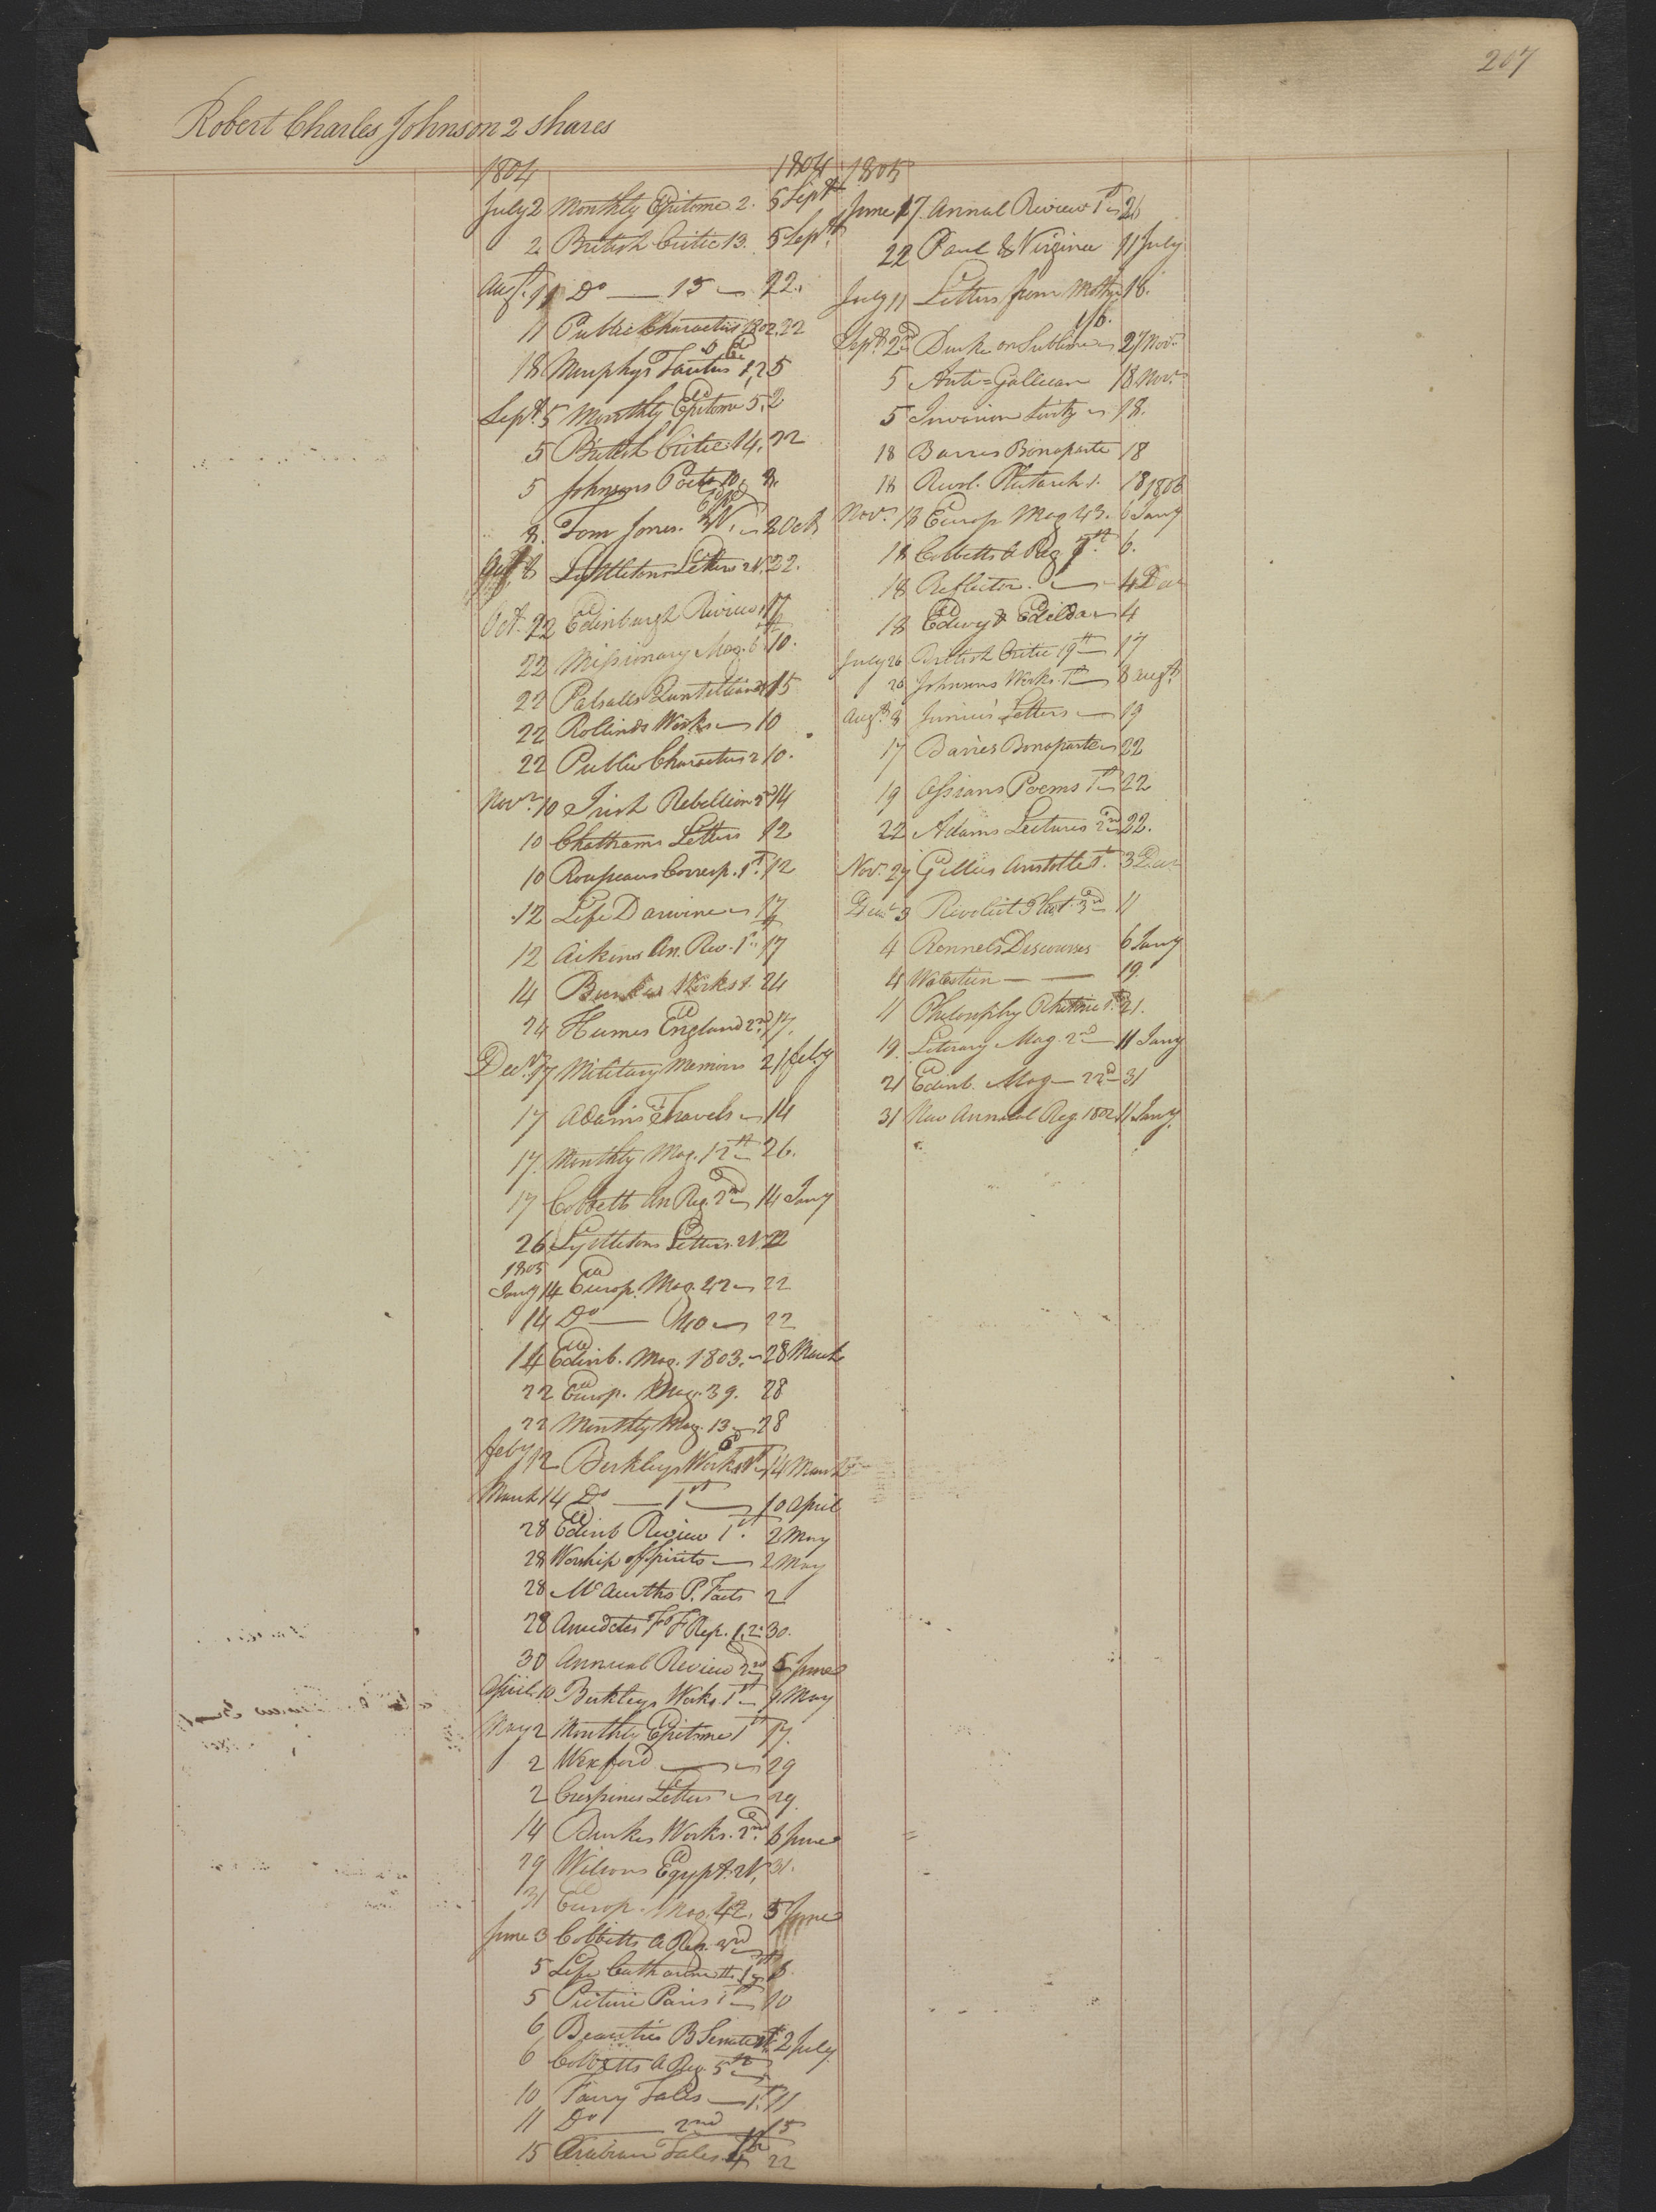 207
Robert Charles Johnson 2 shares
1804 1804
July 2 Monthly Epitome 2. 5 Sept
2 British Critic 13. 5 Sept.
Augt. 11 Do — 15 — 22.
11 Public Characters 1802. 22
18 Murphys Tacitus 1, 2 5
Sept. 5 Monthly Epitome 5. 2
5 British Critic 14. 22
5 Johnsons Poets 10. 8.
8. Tom Jones. 2 Oct
8 Lyttletons Letters 2V. 22.
Oct. 22 Edinburgh Review 17
22 Missionary Mag. 6 10.
22 Quintillian 15
22 Rollins Works 10
22 Public Characters 2 10.
Novr. 10 Irish Rebellion 2d 14
10 Chathams Letters 12
10 Rousseaus Corresp. 1st. 12
12 Life Darwin 17
12 Aikins An. Rev. 1st 17
14 Burkes Works 1. 24
24 Humes England 2nd 17.
Decr. 17 Military Memoirs 21 Feby
17 Adams Travels 14
17. Monthly Mag. 12th 26.
17 Cobbetts An Reg. 2nd 14 Jany
26 Lyttletons Letters. 2V. 22
1805
Jany 14 Europ. Mag. 42 22
14 Do — 40 22
14 Edinb. Mag. 1803. 28 March
22 Europ. Mag. 39. 28
22 Monthly Mag. 13 28
Feby 12 Berkleys Works 14 March
March 14 Do — 1st 10 April
28 Edinb Review 1st. 2 May
28 Worship of Spirits — 2 May
28 P. Facts 2
28 Anecdotes F F Rep. 1, 2. 30.
30 Annual Review 2nd 5 June
April 10 Berkleys Works 1st May
May 2 Monthly Epitome 1st 17.
2 Wexford — 29
2 Crespines Letters 29
14 Burkes Works. 2nd. 6 June
29 Wilsons Egypt. 2V. 31.
31 Europ. Mag. 42. 5 June
June 3 Cobbetts A Reg. 3rd
5 Life Catharine
5 Picture Paris 1st 10
6 Beauties B Senate 2 July
6 Cobbetts A Reg 5th
10 Fairy Tales — 1st. 11
11 Do — 2nd 15
15 Arabian Tales 4th 22
1805
June 17. Annual Review 1st 26
22 Paul & Virginea 11 July
July 11 Letters from Mother 18.
Sept. 2nd Burke on Sublime 27 Novr
5 Anti=Gallican 18 Novr.
5 18.
18 Barres Bonaparte 18
18 Revol. Plutarch 1. 18 1806
Novr. 18 Europ. Mag 43. 6 Jany
18 Cobbetts A Reg 7th. 6.
18 Reflector — 4 Decr
18 Edwy & Edilda 4
July 26 British Critic 19th 17
26 Johnsons Works. 1st 8 Augt.
Augt. 8 Junius' Letters — 19
17 Barres Bonaparte 22
19 Ossians Poems 1st 22
22 Adams Lectures 2nd 22.
Novr. 27 Gillies Aristotle 1st. 3 Decr
Decr 3 Revolut Plut. 3rd 11
4 Rennels Discourses 6 Jany
4 Walstein — 19.
11 Philosophy Rhetoric 1st 21.
19. Literary Mag. 2nd 11 Jany
21 Edinb. Mag — 22d 31
31 New Annual Reg. 1802 11 Jany.